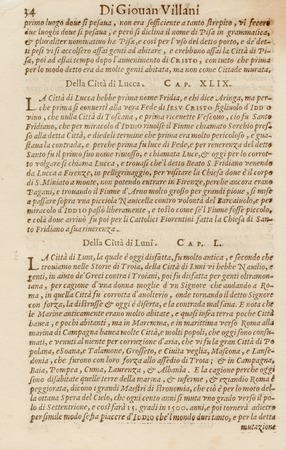 34 Di Giouan Villani
primo luogo doue si pesaua, non era sofficiente a tanto strepito, vi fecero
due luoghi doue si pesaua, e però si diclina il nome di Pisa in grammatica,
& pluraliter nominatiuo hæ Pisæ, e così per l'uso del detto porto, e de' det-
ti pesi vi si accolsero assai genti ad abitare, e crebbono alla città
poi, ad assai tempo dopo l'auuenimento di CRISTO, con tutto che prima
per lo modo detto era da molte genti abitata, ma non come Cittade murata,
Della Città di Lucca. CAP. XLIX.
LA Città di Lucca hebbe prima nome Fridia, e chi dice Aringa, ma per-
che prima si conuertì alla vera Fede di IESV CRISTO figliuolo d'IDDIO
viuo, che nulla Città di Toscana, e prima riceuette Vescouo, cio fu Santo
Fridiano, che per miracolo d'IDDIO riuolse il Fiume chiamato Serchio presso
so alla detta Città, e diedeli termine che prima era molto pericoloso, e guastaua
la contrada, e prima fu luce di Fede, e per reuerenza del detto
Santo fu il primo nome rimosso, e chiamata Luce, & oggi per lo corrotto
volgare si chiama Lucca, e truouasi che'l detto Beato S. Fridiano venendo
da Lucca a Firenze, in pellegrinaggio, per visitare la Chiesa doue è il corpo
di S. Miniato a monte, non potendo entrare in Firenze, perche ancora erano
Pagani, e trouando il Fiume d'Arno molto grosso per grande pioue, si mise
a passare sopra vna piccola Nauicella contro volontà del Barcaiuolo, e per
miracolo d'IDDIO passò liberamente, e tosto come se'l Fiume fosse piccolo,
e colà doue arriuò fu poi per li Cattolici Fiorentini fatta la Chiesa di San-
to Fridiano a sua riuerenza.
Della Città di Luni. CAP. L.
LA Città di Luni, la quale è oggi disfatta, fu molto antica, e secondo che
trouiamo nelle Storie di Troia, della Città di Luni vi hebbe Nauilio, e
genti, in aiuto de' Greci contra i Troiani, poi fu disfatta per genti oltramon-
tana, per cagione d'vna donna moglie d'vn Signore che andando a Ro-
ma, in quella Città fu corrotta d'auolterio, onde tornando il detto Signore
con forza, la distrusse & oggi è diserta, e la contrada malsana. E nota che
le Marine anticamente erano molto abitate, e quasi infra terra poche Città
haueua, e pochi abitanti, ma in Maremma, e in marittima verso Roma alla
marina di Campagna haueua molte Città, e molti popoli, che oggi sono consu-
mati, e venuti al niente per corruzione d'aria, che vi fu la gran Città di Po
polana, e Soana, e Talamone, Grosseto, e Ciuita veglia, Mascona, e Lanse-
donia, che furono con loro forza allo assedio di Troia; & in Campagna,
Baia, Pompea, Cuma, Laurenza, & Albania. E la cagione perche oggi
sono disabitate quelle terre della marina, & inferme, & eziandio Roma è
peggiorata, dicono i grandi Maestri di Stronomia, che ciò è per lo moto del-
la ottaua Spera del Cielo, che ogni cento anni si muta vno grado verso il po-
lo di Settentrione, e così farà 15. gradi in 1500. anni, e poi tornerà adietro
per simile modo se fia piacere d'IDDIO che'l mondo duri tanto, e per la detta
mutazione